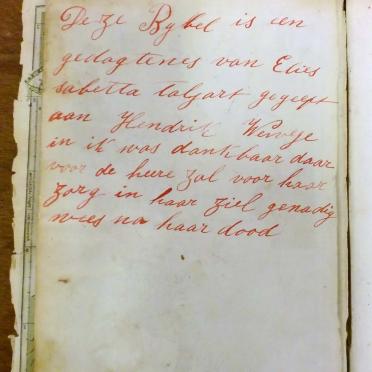 Deze Bybel is een
gedagtenes van Elies
sabetta talgart gegeeft
aan Hendrik
in it was dankbaar daar
voor de heere zal voor haar
zorg in haar ziel genadig
wees na haar dood